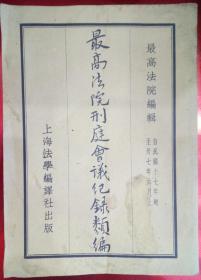 最高法院編輯
自民國十七年
七年 月
最高法院刑庭會議紀錄類編
上海法學編譯社出版